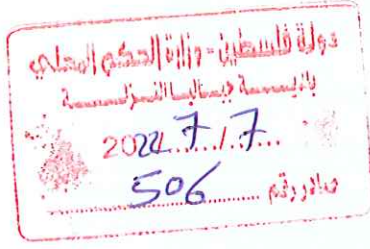 دولة فلسطين - وزارة الحكم المحلي
بلدية جباليا النزلة
2022 7 / 7
صادر رقم 506